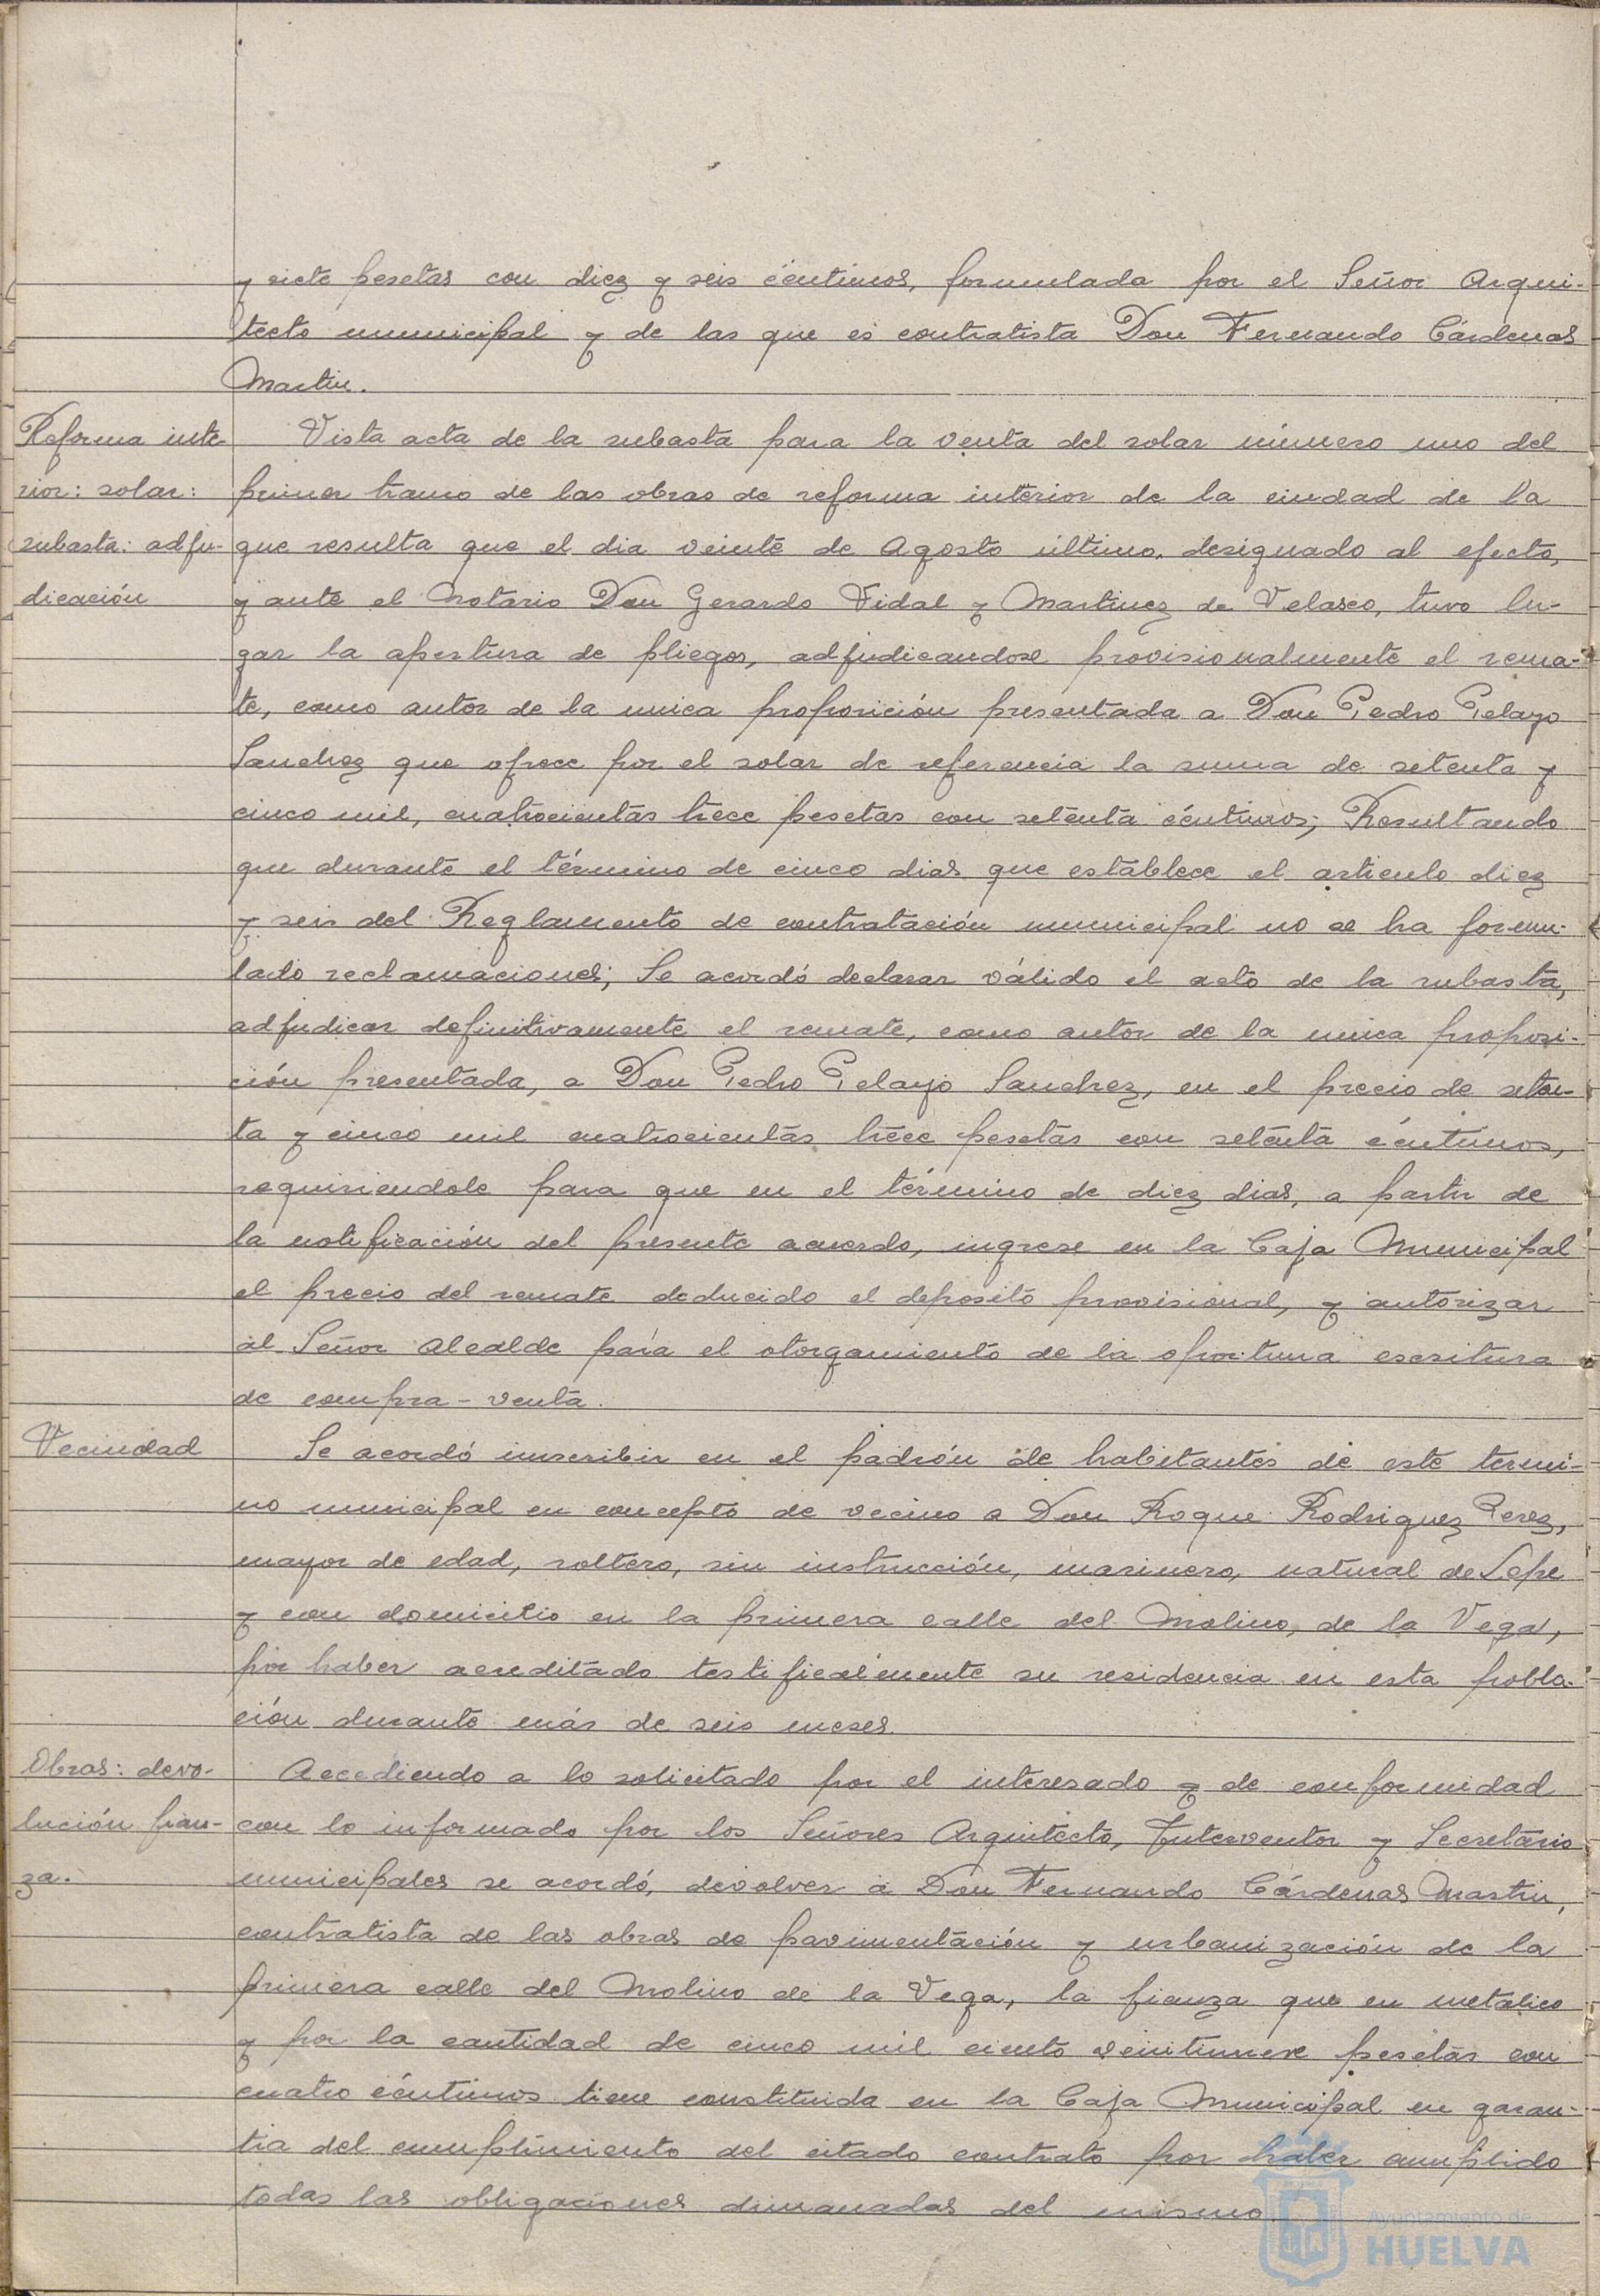 y siete pesetas con diez y seis céntimos, formulada por el Señor Arqui-
tecto municipal y de las que es contratista Don Fernando Cárdenas
Martin.
Reforma inte-
rior: solar:
subasta: adju-
dicación
Vista acta de la subasta para la venta del solar número uno del
primer tramo de las obras de reforma interior de la ciudad de la
que resulta que el dia veinte de Agosto último, designado al efecto,
y ante el Notario Don Gerardo Vidal y Martinez de Velasco, tuvo lu-
gar la apertura de pliegos, adjudicandose provisionalmente el rema-
te, como autor de la unica proposición presentada a Don Pedro Pelayo
Sanchez que ofrece por el solar de referencia la suma de setenta y
cinco mil, cuatrocientas trece pesetas con setenta céntimos; Resultando
que durante el término de cinco dias que establece el articulo diez
y seis del Reglamento de contratación municipal no se ha formu-
lado reclamaciones; Se acordó declarar válido el acto de la subasta,
adjudicar definitivamente el remate, como autor de la unica proposi-
ción presentada, a Don Pedro Pelayo Sanchez, en el precio de seten-
ta y cinco mil cuatrocientas trece pesetas con setenta céntimos,
requiriendole para que en el término de diez dias, a partir de
la notificación del presente acuerdo, ingrese en la Caja Municipal
el precio del remate deducido el deposito provisional, y autorizar
al Señor Alcalde para el otorgamiento de la oportuna escritura
de compra-venta.
Vecindad
Se acordó inscribir en el padrón de habitantes de este termi-
no municipal en concepto de vecino a Don Roque Rodriguez Perez,
mayor de edad, soltero, sin instrucción, marinero, natural de Lepe
y con domicilio en la primera calle del Molino, de la Vega,
por haber acreditado testificalmente su residencia en esta pobla-
ción durante más de seis meses.
Obras: devo-
lución fian-
za.
Accediendo a lo solicitado por el interesado y de conformidad
con lo informado por los Señores Arquitecto, Interventor y Secretario
municipales se acordó, devolver a Don Fernando Cárdenas Martin,
contratista de las obras de pavimentación y urbanización de la
primera calle del Molino de la Vega, la fianza que en metálico
y por la cantidad de cinco mil ciento veintinueve pesetas con
cuatro céntimos tiene constituida en la Caja Municipal en garan-
tia del cumplimiento del citado contrato por haber cumplido
todas las obligaciones dimanadas del mismo.
Ayuntamiento de
HUELVA